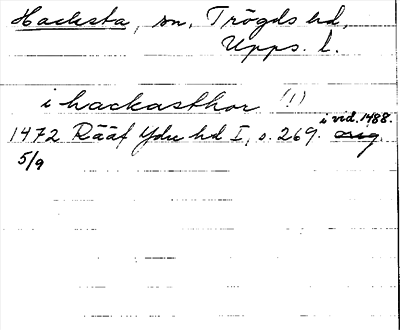 Hacksta, sn, Trögds hd,
Upps. l.
i hackasthor (!)
i vid. 1488.
1472 Rääf Ydre hd I, s. 269. orig
5/9